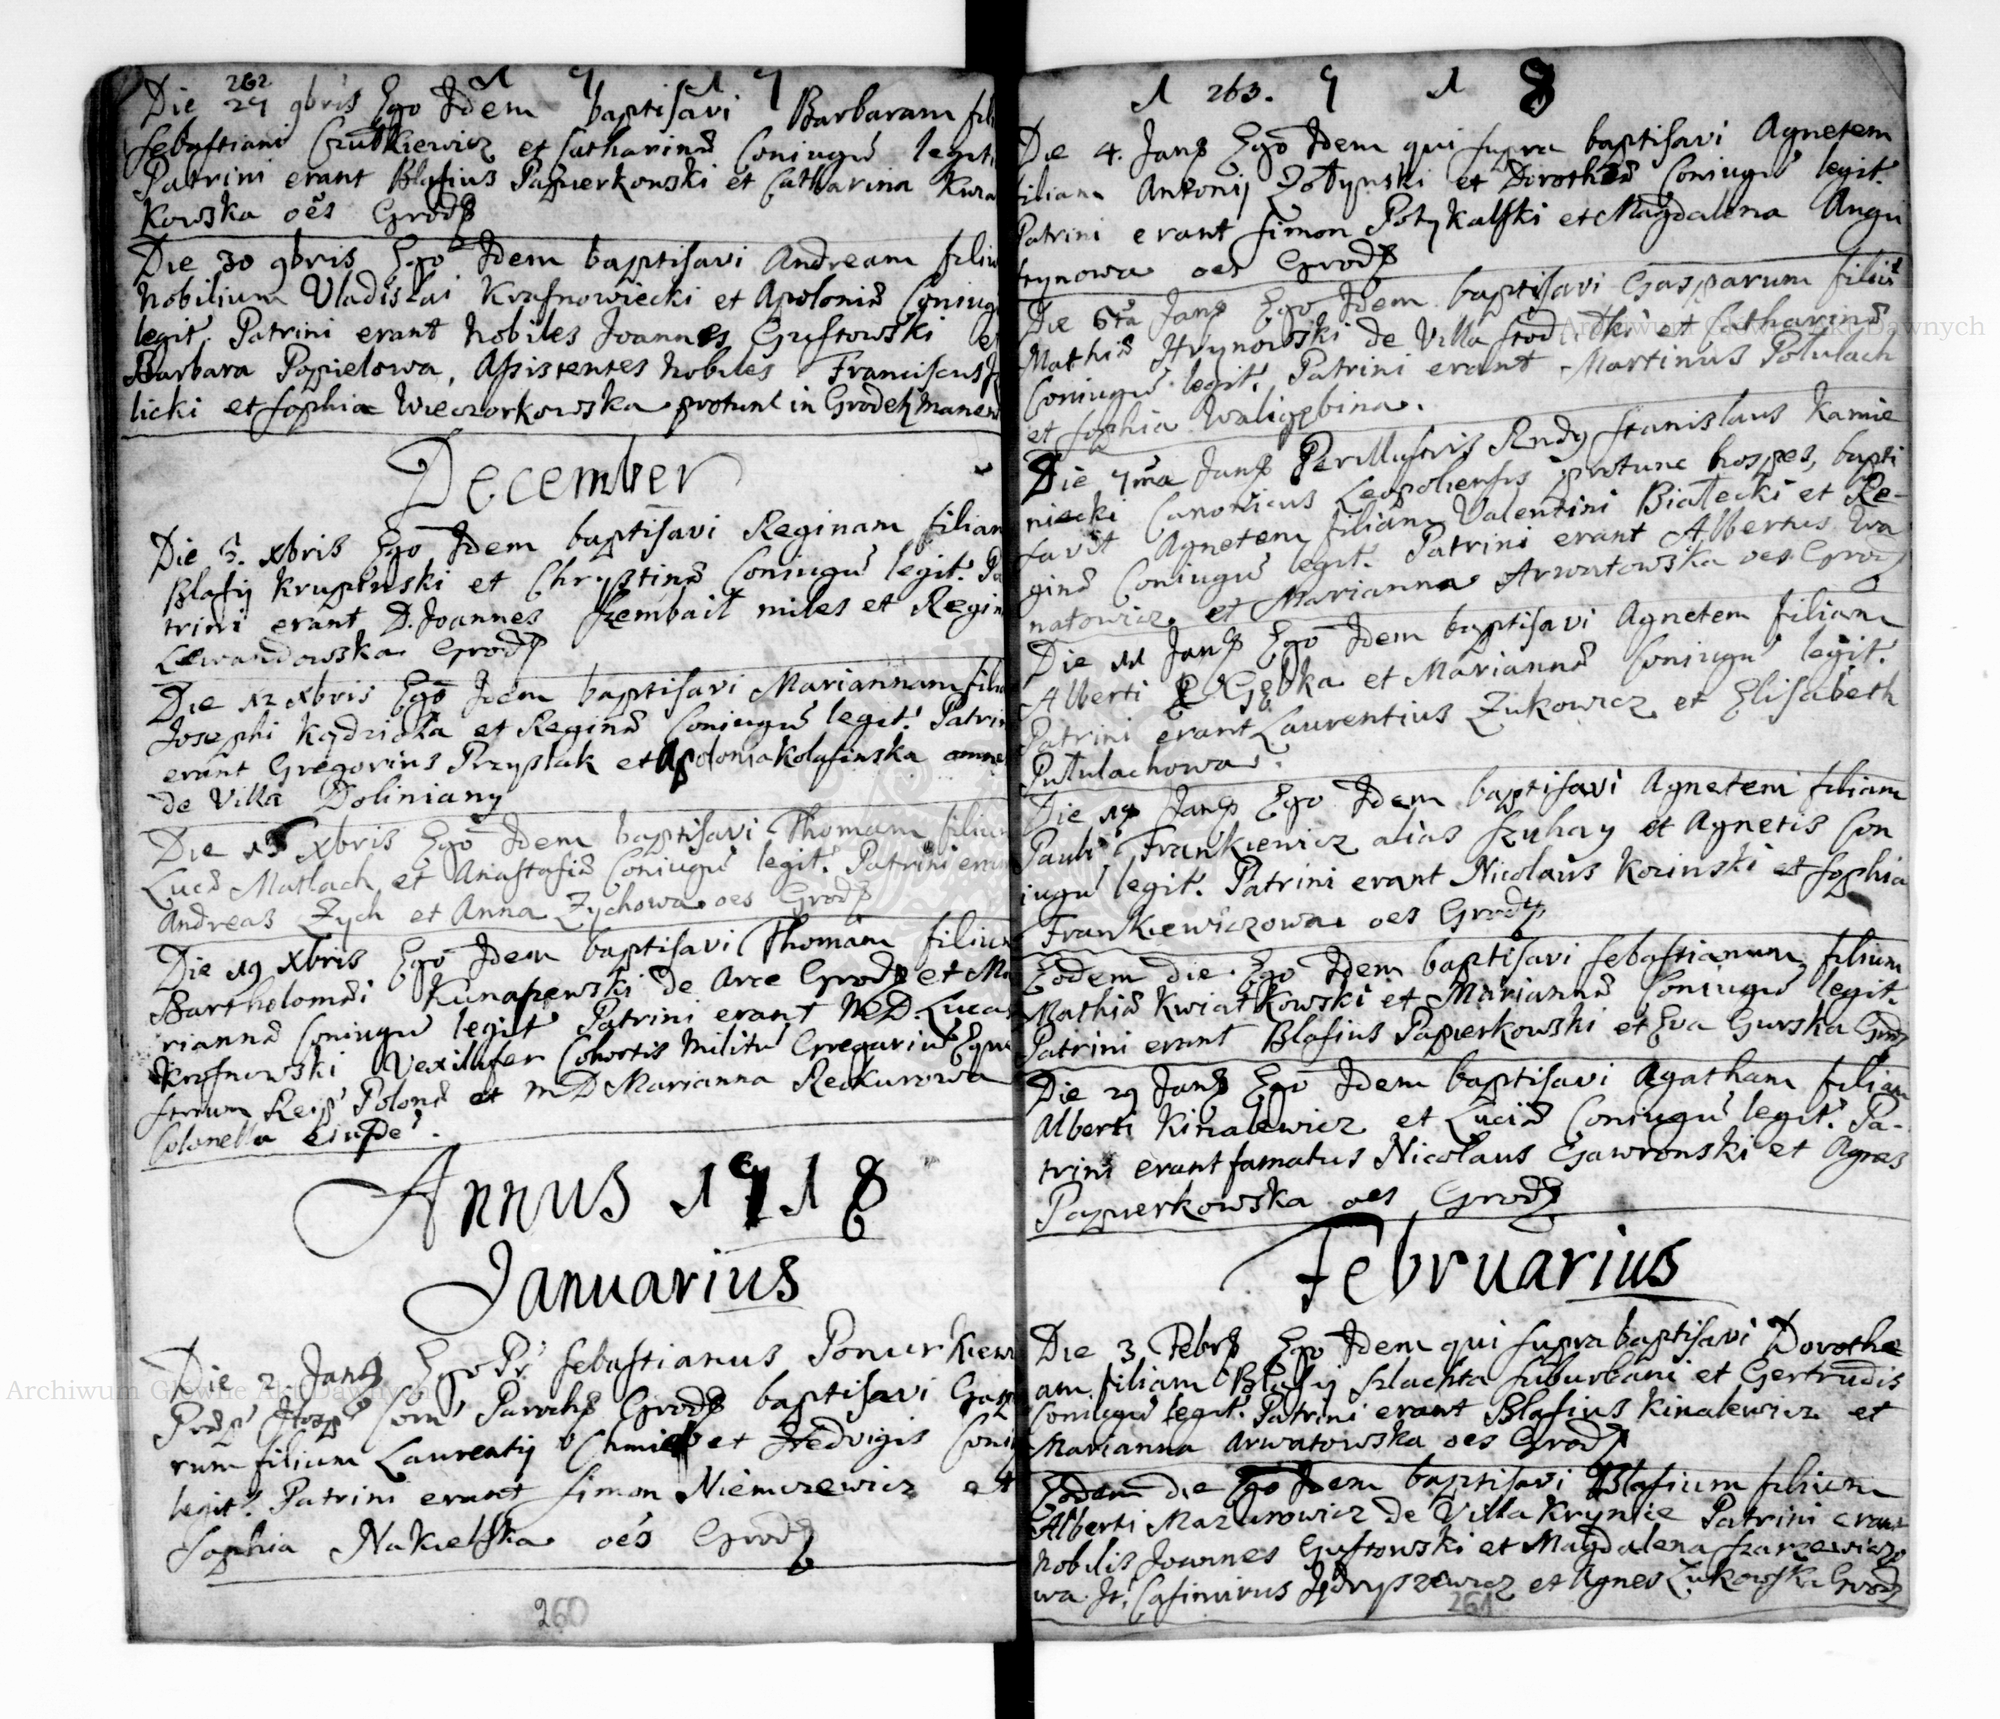 262
1 7 1 7
Die 27 9bris Ego Idem baptisavi Barbaram fili
Sebastiani Czubkiewicz et Catharinæ Coniugū legit
Patrini erant Blasius Papierkowski et Catharina Kwia
kowska oēs Grod
Die 30 9bris Ego Idem baptisavi Andream filiu
Nobilium Vladislai Krasnowiecki et Apoloniæ Coniug
legit. Patrini erant Nobiles Joannes Gustowski et
Barbara Popielowa, Assistentes Nobiles Franciscus
licki et Sophia Wieczorkowska protunc in Grodek manen
December
Die 5. xbris Ego Idem baptisavi Reginam filiam
Blasij Krupinski et Chrystinæ Coniugū legit. Pa
trini erant D. Joannes Szembail miles et Regin
Lewandowska Grod
Die 12 xbris Ego Idem baptisavi Mariannam filia
Josephi Kądziołka et Reginæ Coniugū legit. Patrin
erant Gregorius Przyslak et Apolonia Kolasinska omnes
de Villa Doliniany
Die 15 xbris Ego Idem baptisavi Thomam filium
Lucæ Matlach et Anastasiæ Coniugū legit. Patrini eran
Andreas Zych et Anna Zychowa oes Grod
Die 19 xbris Ego Idem baptisavi Thomam filium
Bartholomæi Kunaszewski de Arce Grod et Ma
riannæ Coniugū legit Patrini erant MD. Lucas
Krasnowski Vexillifer Cohortis Militū Gregariū Eque
strium Reip Polonæ et MD Marianna Reckurowa
Colonella eiusdē.
Annus 1718
Januarius
Die 2 Jan Ego Pr Sebastianus Ponurkiewi
Præp Hosp Com Paroch Grod baptisavi Gaspa
rum filium Laurentij Chmiel et Hedvigis Coniu
legit. Patrini erant Simon Niemczewicz et
Sophia Nakielska oēs Grod
260
1 263. 7 1 8
Die 4. Jan Ego Idem qui supra baptisavi Agnetem
filiam Antonij Zołynski et Dorotheæ Coniugū legit.
Patrini erant Simon Potykalski et Magdalena Augu
tynowa oes Grod
Die 6ta Jan Ego Idem baptisavi Gasparum filiū
Mathiæ Hrynowski de Villa Stodułki et Catharinæ
Coniugū legit. Patrini erant Martinus Potulach
et Sophia Waligębina.
Die 7ma Jan Perillustris Rndg Stanislaus Kamie
niecki Canonicus Leopoliensis protunc hospes, bapti
savit Agnetem filiam Valentini Białecki et Re-
ginæ Coniugū legit. Patrini erant Albertus Wa
natowicz et Marianna Arwatowska oes Grod
Die 11 Jan Ego Idem baptisavi Agnetem filiam
Alberti Gębka et Mariannæ Coniugū legit.
Patrini erant Laurentius Zukowicz et Elisabeth
Putulachowa.
Die 19 Jan Ego Idem baptisavi Agnetem filiam
Pauli Frankiewicz alias Szuhay et Agnetis Con
iugū legit. Patrini erant Nicolaus Kozinski et Sophia
Frankiewiczowa oes Grod
Eodem die Ego Idem baptisavi Sebastianum filium
Mathiæ Kwiatkowski et Mariannæ Coniugū legit.
Patrini erant Blasius Papierkowski et Eva Gurska Grod
Die 29 Jan Ego Idem baptisavi Agatham filiam
Alberti Kinalewicz et Luciæ Coniugū legit. Pa-
trini erant famatus Nicolaus Gawronski et Agnes
Papierkowska oes Grod
Februarius
Die 3 Febr Ego Idem qui supra baptisavi Dorothe
am filiam Blasij Szlachta suburbani et Gertrudis
Coniugū legit. Patrini erant Blasius Kinalewicz et
Marianna Arwatowska oes Grod
Eodem die Ego Idem baptisavi Blasium filium
Alberti Mazurowicz de Villa Krynice Patrini erant
Nobilis Joannes Gustowski et Magdalena Szarzewiczo
wa. It. Casimirus Jędryszewicz et Agnes Zukowska Grod
261
Archiwum Główne Akt Dawnych
Archiwum Główne Akt Dawnych